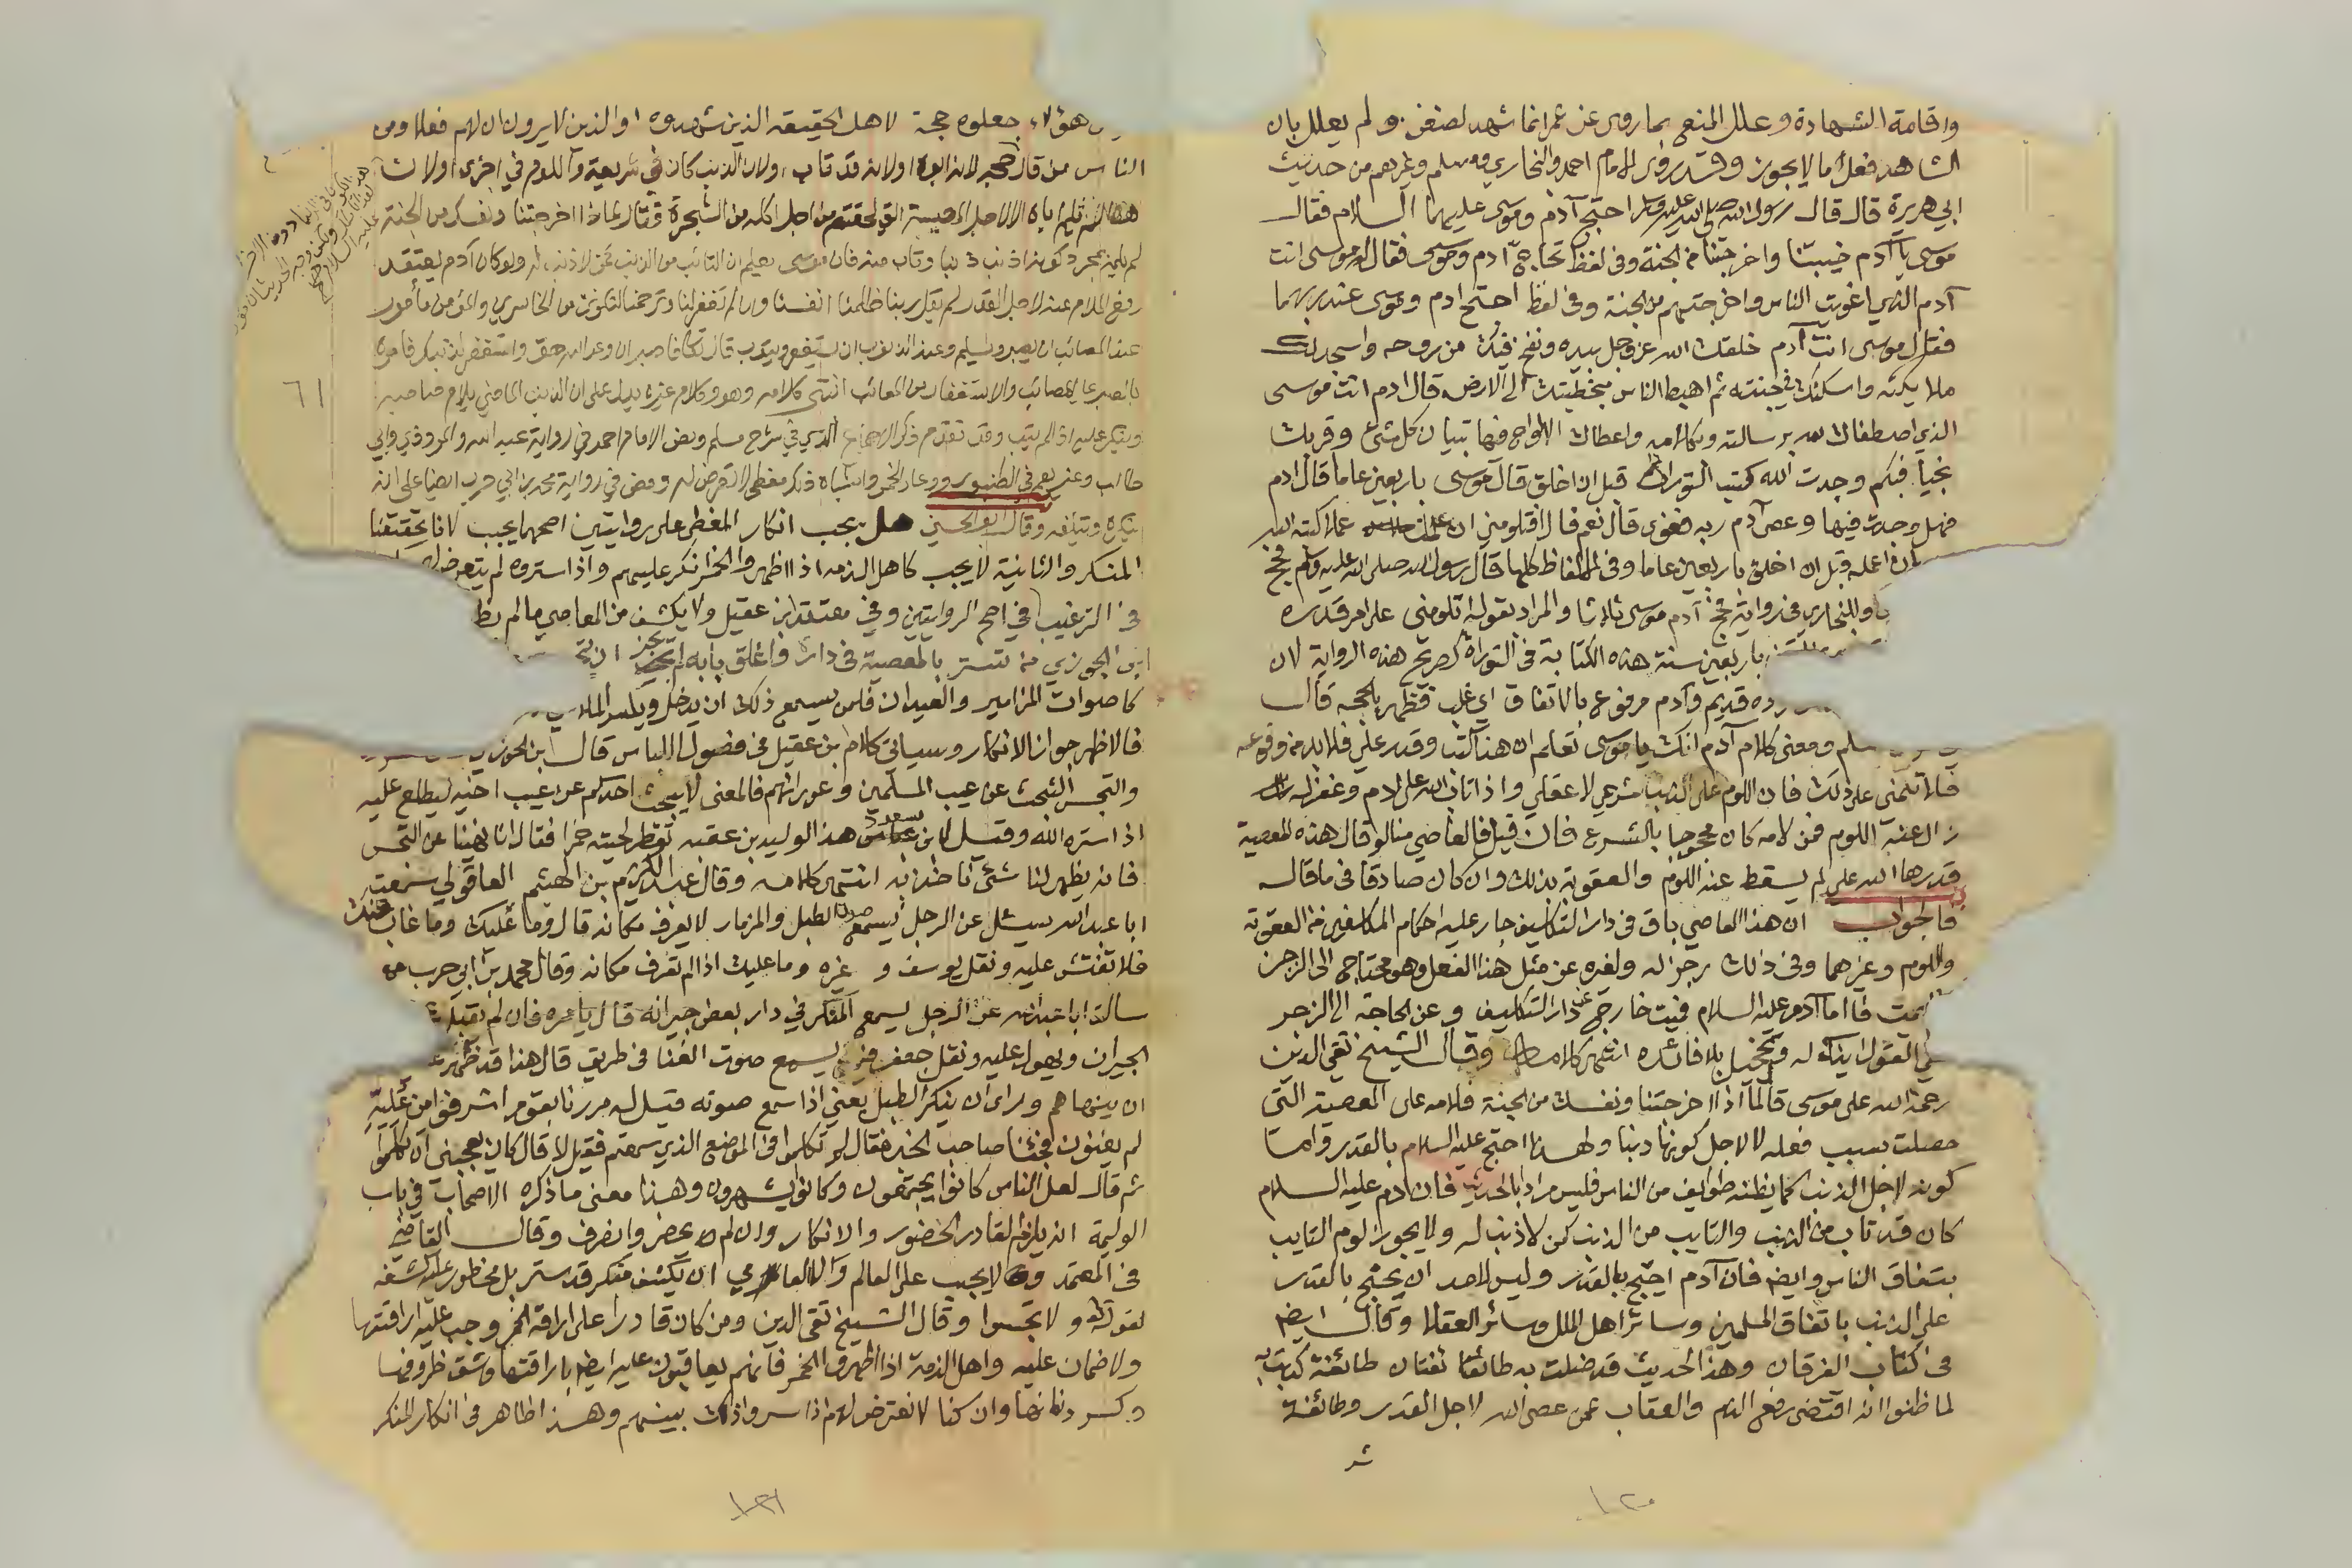 واقامة الشهادة وعلل المنع بما روى عن عمر انما شهد لضغن ولم يعلل بان
الشاهد فعل ما لا يجوز وقد روى الامام احمد والبخاري ومسلم وغيرهم من حديث
ابي هريرة قال قال رسول الله صلى الله عليه وسلم احتج آدم وموسى عليهما السلام فقال
موسى يا آدم خيبتنا واخرجتنا من الجنة وفي لفظ تحاج آدم وموسى فقال له موسى انت
آدم الذي اغويت الناس واخرجتهم من الجنة وفي لفظ احتج ادم وموسى عند ربهما
فقال موسى انت آدم خلقك الله عز وجل بيده ونفخ فيك من روحه واسجد لك
ملائكته واسكنك في جنته ثم اهبط الناس بخطيتك الى الارض قال ادم انت موسى
الذي اصطفاك الله برسالته وبكلامه واعطاك الالواح فيها تبيان كل شئ وقربك
نجيا فبكم وجدت الله كتب التوراة قبل ان اخلق قال موسى باربعين عاما قال ادم
فهل وجدت فيها وعصى آدم ربه فغوى قال نعم قال افتلومني ان عملت عملا كتبه الله
ان اعمله قبل ان اخلق باربعين عاما وفي الالفاظ كلها قال رسول الله صلى الله عليه وسلم فحج
وللبخاري في رواية فحج آدم موسى ثلاثا والمراد بقوله اتلومني على امر قدره
باربعين سنة هذه الكتابة في التوراة كصريح هذه الرواية لان
قديم وآدم مرفوع بالاتفاق اي غلب فظهر بالحجه قال
ومعنى كلام آدم انك يا موسى تعلم ان هذا كتب وقدر علي فلا بد من وقوعه
فلا تلمني على ذلك فان اللوم على الذنب شرعي لا عقلي واذا تاب الله على ادم وغفر له
زال عنه اللوم فمن لامه كان محجوجا بالشرع فان قيل فالعاصي منا لو قال هذه المعصية
قدرها الله علي لم يسقط عنه اللوم والعقوبة بذلك وان كان صادقا في ما قاله
فالجواب ان هذا العاصي باق في دار التكليف جار عليه احكام المكلفين من العقوبة
واللوم وغيرهما وفي ذلك زجر له ولغيره عن مثل هذا الفعل وهو محتاج الى الزجر
يمت فاما آدم عليه السلام فميت خارج عن دار التكليف وعن الحاجة الى الزجر
القول ايذاء له وتخجيل بلا فائده انتهى كلامه وقال الشيخ تقي الدين
رحمه الله على موسى قال لماذا اخرجتنا ونفسك من الجنة فلامه على المصيبة التي
حصلت بسبب فعله لا لاجل كونها ذنبا ولهذا احتج عليه السلام بالقدر واما
كونه لاجل الذنب كما يظنه طوايف من الناس فليس مراد بالحديث فان آدم عليه السلام
كان قد تاب من الذنب والتايب من الذنب كمن لا ذنب له ولا يجوز لوم التايب
بتفاق الناس وايضا فان آدم احتج بالقدر وليس لاحد ان يحتج بالقدر
على الذنب باتفاق المسلمين وسائر اهل الملل وسائر العقلا وقال ايضا
في كتاب الفرقان وهذا الحديث قد ضلت به طائفتان طائفة كذبت به
لما ظنوا انه اقتضى رفع الذم والعقاب عمن عصى الله لاجل القدر وطائفة
شر
١٢٠
هؤلاء جعلوه حجة لاهل الحقيقه الذين شهدوه او الذين لا يرون ان لهم فعلا ومن
الناس من قال حجه لانه ابوه او لانه قد تاب او لان الذنب كان في شريعة واللوم في اخرى
اياه الا لاجل المصيبة التي لحقتهم من اجل اكله من الشجرة فقال لماذا اخرجتنا ونفسك من الجنة
لم يلمه لمجرد كونه اذنب ذنبا وتاب منه فان موسى يعلم ان التائب من الذنب كمن لا ذنب له ولو كان آدم يعتقد
رفع الملام عنه لاجل القدر لم يقل ربنا ظلمنا انفسنا وان لم تغفر لنا وترحمنا لنكونن من الخاسرين والمؤمن مأمور
عند المصائب ان يصبر ويسلم وعند الذنوب ان يستغفر ويتوب قال تعالى فاصبر ان وعد الله حق واستغفر لذنبك فامره
بالصبر على المصائب والاستغفار من المعائب انتهى كلامه وهو وكلام غيره يدل على ان الذنب الماضي يلام صاحبه
وينكر عليه اذا لم يتب وقد تقدم ذكر الاجماع الذي في شرح مسلم ونص الامام احمد في رواية عبد الله والمروذي وابي
طالب وغيرهم في الطنبور ووعاء الخمر واشباه ذلك مغطى لا تعرض له ونص في رواية محمد بن ابي حرب ايضا على انه
ينكره ويتلفه وقال ابو الحسين هل يجب انكار المغطى على روايتين اصحهما يجب لانا تحققنا
المنكر والثانية لا يجب كاهل الذمه اذا اظهروا الخمر انكر عليهم واذا ستروه لم يتعرض
في الترغيب في اصح الروايتين وفي معتقد ابن عقيل ولا يكشف من المعاصي ما لم يظ
ابن الجوزي من تستر بالمعصية في داره واغلق بابه لم يجز ان
كاصوات المزامير والعيدان فلمن يسمع ذلك ان يدخل ويكسر الملاهي
فالاظهر جواز الانكار وسياتي كلام بن عقيل في فصول اللباس قال ابن الجوزي
والتجسس البحث عن عيب المسلمين وعوراتهم فالمعنى لا يبحث احدكم عن عيب اخيه ليطلع عليه
اذا ستره الله وقيل لابن مسعود هذا الوليد بن عقبه تقطر لحيته خمرا فقال انا نهينا عن التجسس
فان يظهر لنا شئ ناخذ به انتهى كلامه وقال عبد الكريم بن الهيثم العاقولي سمعت
ابا عبد الله سئل عن الرجل يسمع صوت الطبل والمزمار لا يعرف مكانه قال وما عليك وما غاب عنك
فلا تفتش عليه ونقل يوسف وغيره وما عليك اذا لم تعرف مكانه وقال محمد بن ابي حرب
سالت ابا عبد الله عن الرجل يسمع المنكر في دار بعض جيرانه قال يامره فان لم يقبل
الجيران ويهول عليه ونقل جعفر يسمع صوت الغنا في طريق قال هذا قد ظهر
ان ينهاهم وراى ان ينكر الطبل يعني اذا سمع صوته قيل له مررنا بقوم اشرفوا من علية
لهم يغنون فجئنا صاحب الخبر فقال لم تكلموا في الموضع الذي سمعتم فقيل لا قال كان يعجبني ان تكلموا
ثم قال لعل الناس كانوا يجتمعون وكانوا يشهرون وهذا معنى ما ذكره الاصحاب في باب
الوليمة انه يلزم القادر الحضور والانكار وان لم يحضر وانصرف وقال القاضي
في المعتمد ولا يجب على العالم والعامي ان يكشف منكر قد ستر بل محظور عليه كشفه
لقوله تعالى ولا تجسسوا وقال الشيخ تقي الدين ومن كان قادرا على اراقة الخمر وجب عليه اراقتها
ولا ضمان عليه واهل الذمة اذا اظهروا الخمر فانهم يعاقبون عليه ايضا باراقتها وشق ظروفها
وكسر دنانها وان كنا لا نعترض لهم اذا اسروا ذلك بينهم وهذا ظاهر في انكار المنكر
٦١
١٢١